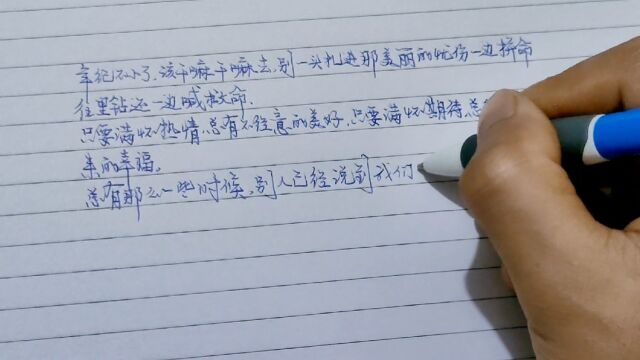 年纪不小了，该干嘛干嘛去，别一头扎进那美丽的忧伤一边拼命
往里钻还一边喊救命.
只要满怀热情，总有不经意的美好，只要满怀期待，总
来的幸福。
总有那么一些时候，别人已经说到我们